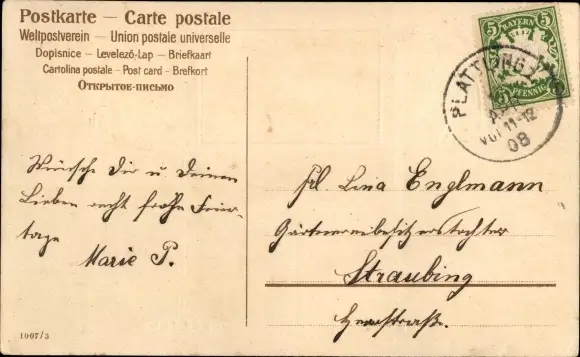 Postkarte — Carte postale
Weltpostverein — Union postale universelle
Dopisnice — Levelező-Lap — Briefkaart
Cartolina postale — Post card — Brefkort
Открытое-письмо
5 BAYERN 5
5 PFENNIG 5
PLATTLING
VOR 11-12
08
Wünsche Dir u Deinen
Lieben recht frohe Feier-
tage
Marie P.
Frl. Lina Englmann
Gärtnereibesitzerstochter
Straubing
1007/3